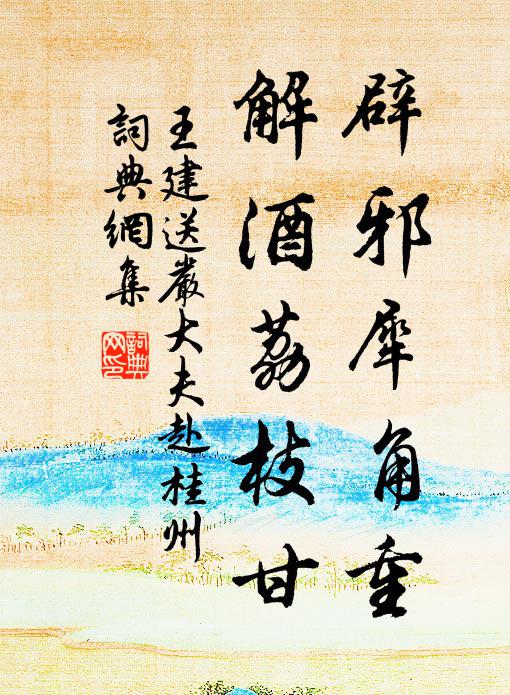 辟邪犀角重
解酒荔枝甘
王建送嚴大夫赴桂州
詞典網集
詞典網印